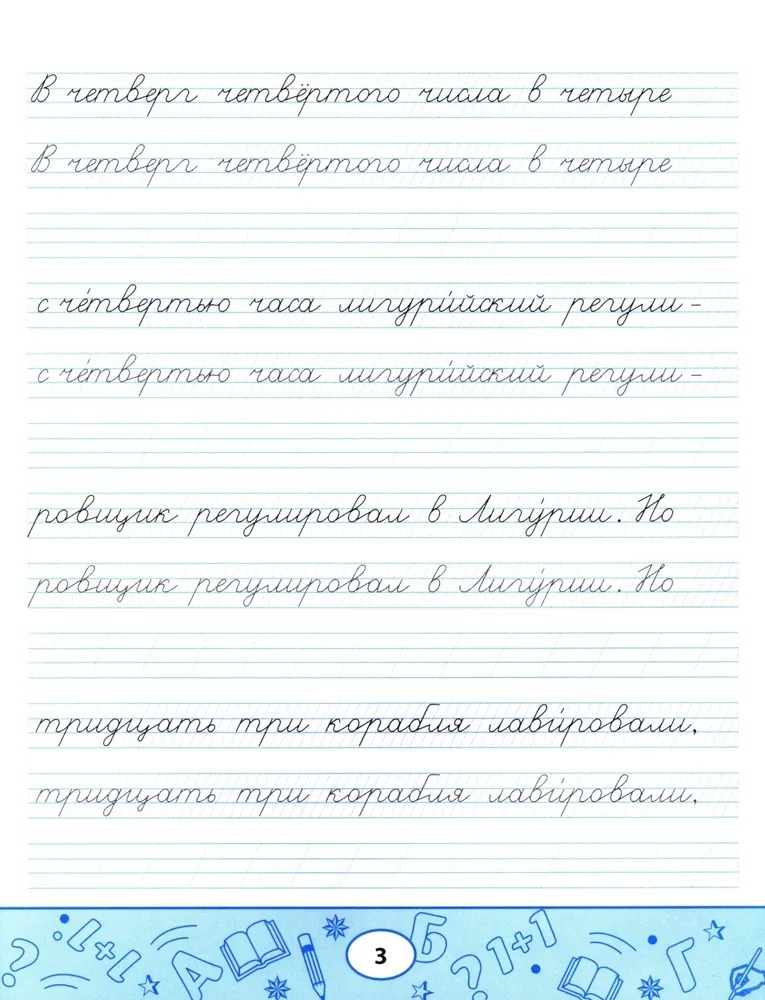 В четверг четвёртого числа в четыре
В четверг четвёртого числа в четыре
с че́твертью часа лигури́йский регули-
с че́твертью часа лигури́йский регули-
ровщик регулировал в Лигу́рии. Но
ровщик регулировал в Лигу́рии. Но
тридцать три корабля лави́ровали,
тридцать три корабля лави́ровали,
? 1+1 А 3 Б ? 1+1 Г